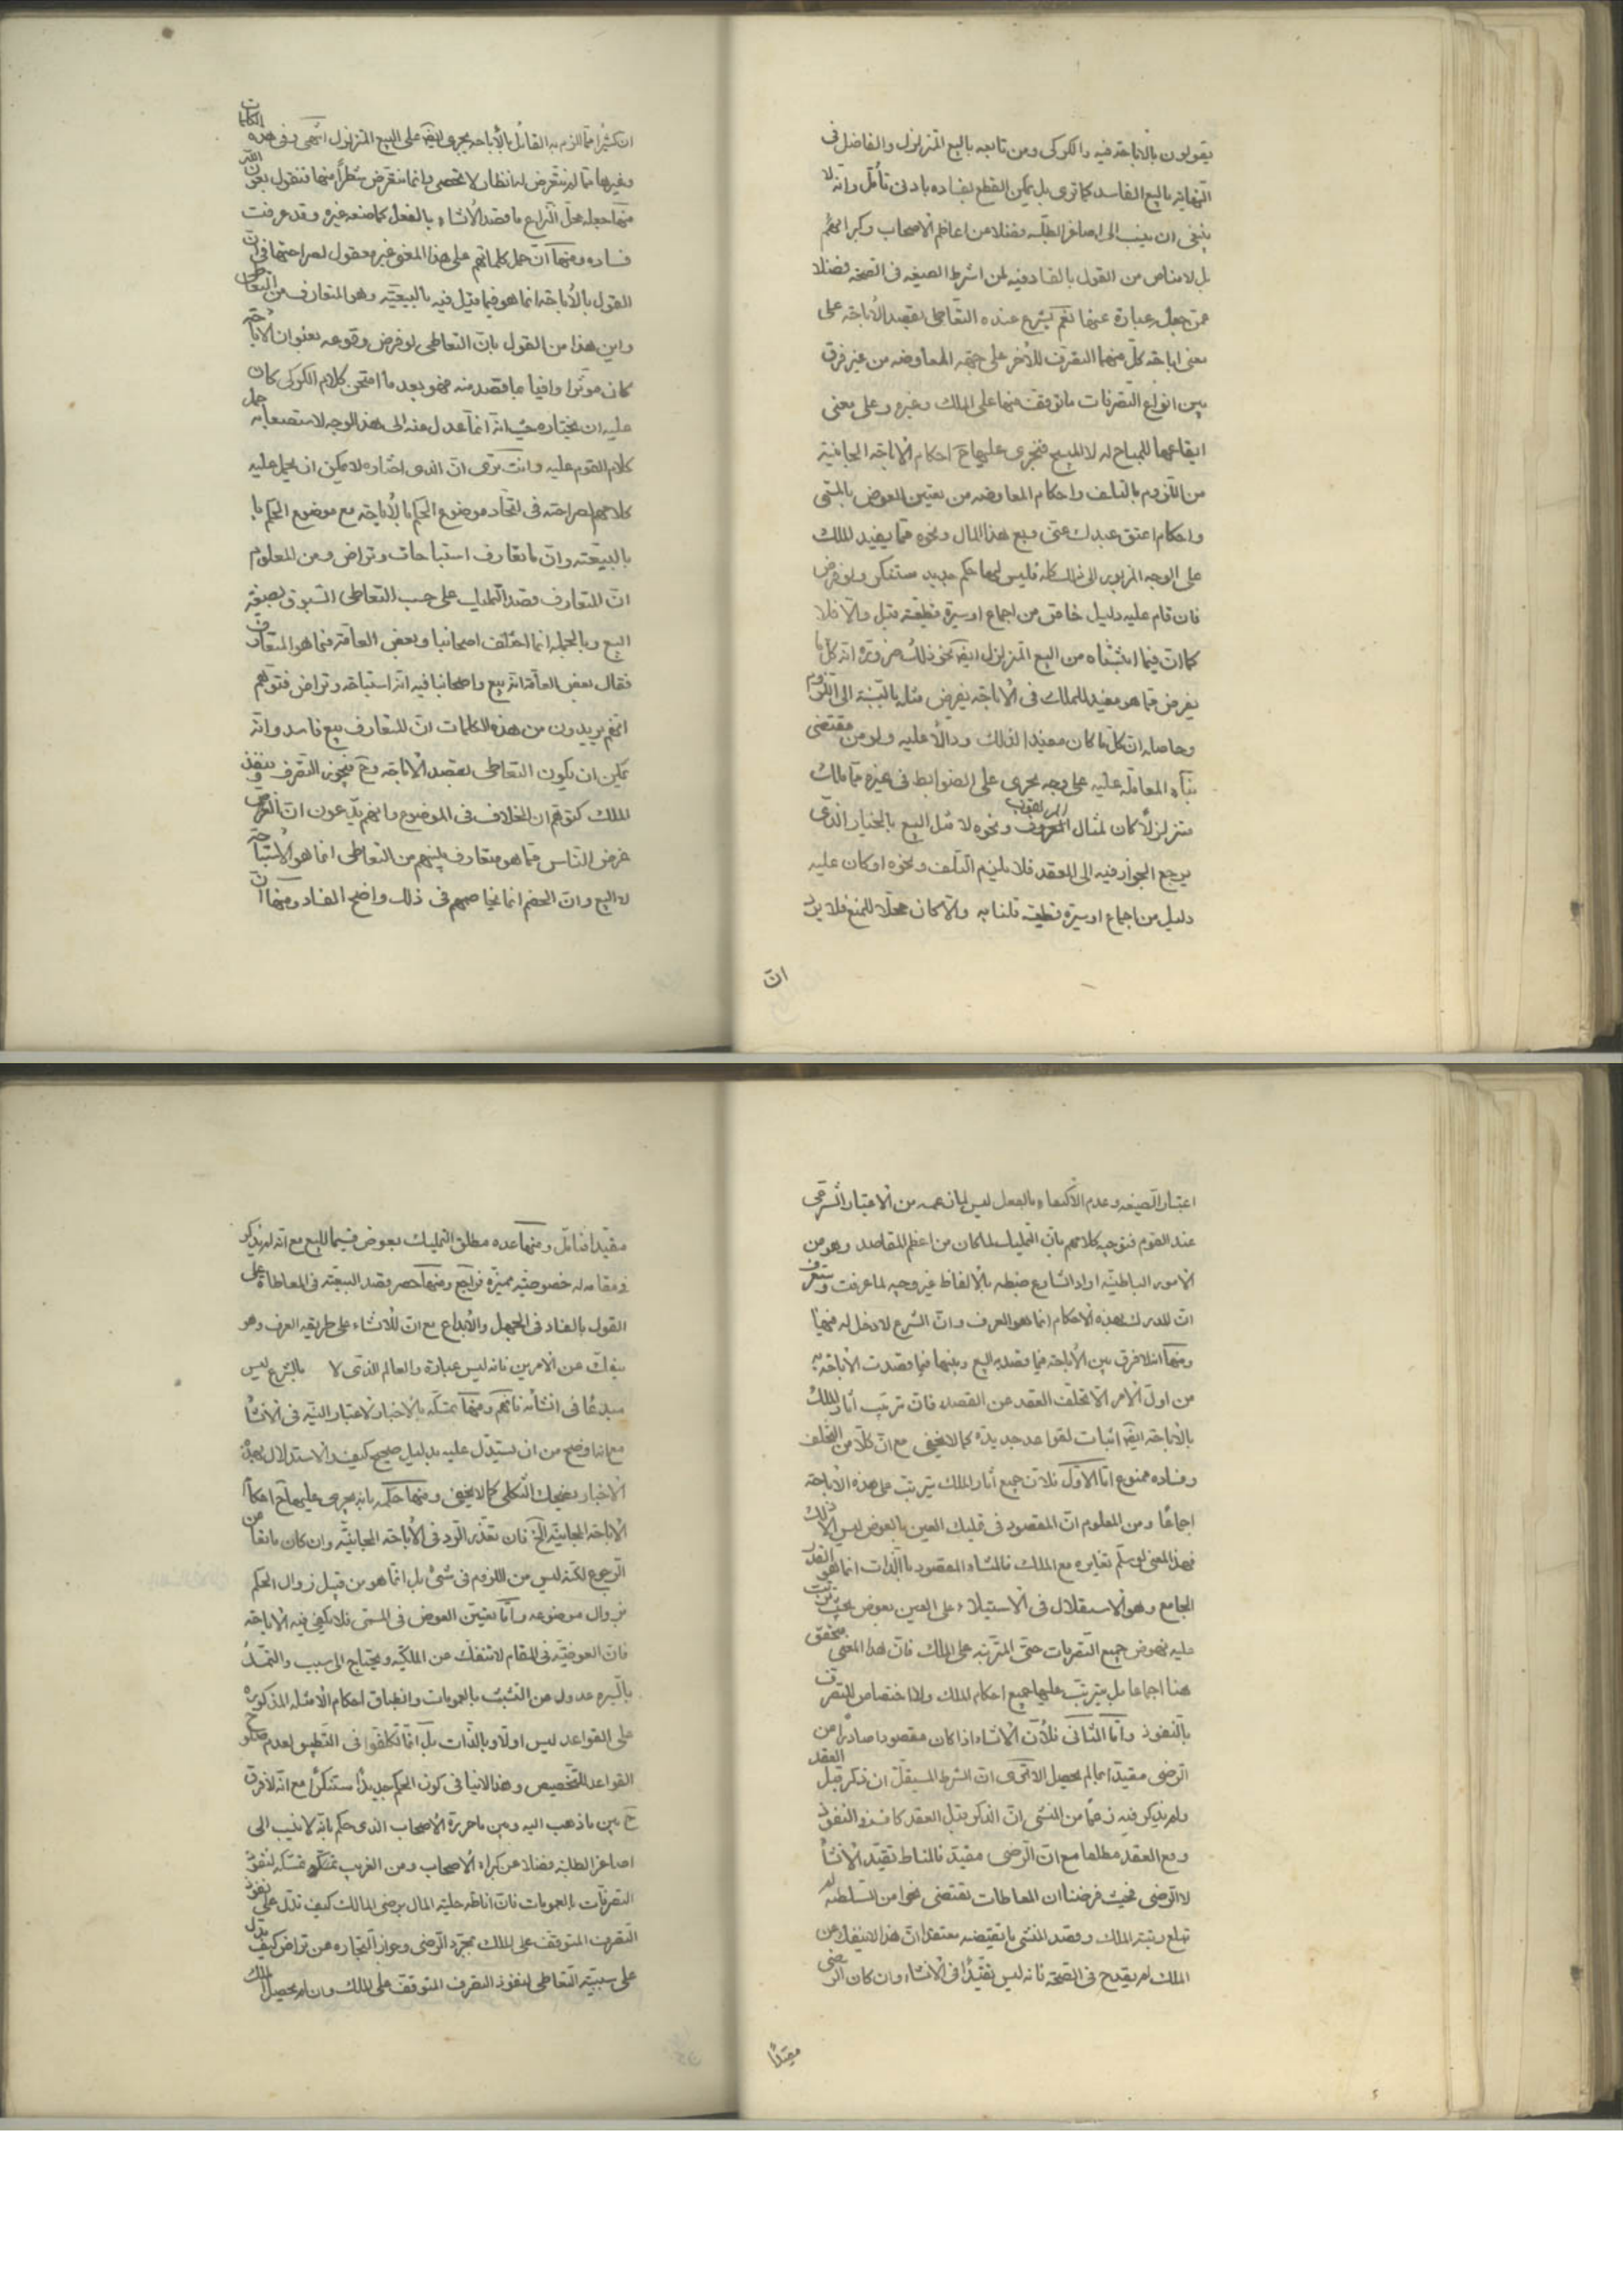 يقولون بالاباحة فيه والكركى ومن تابعه بالبيع المتزلزل والفاضل فى
النهاية بالبيع الفاسد كما ترى بل يمكن القطع بفساده بادنى تأمل وانه لا
ينبغى ان ينسب الى اصاغر الطلبة فضلا من اعاظم الاصحاب وكبرائهم
بل لا مناص من القول بالفساد فيه لمن اشترط الصيغه فى الصحة فضلا
عمن جعله عبارة عنها نعم يشرع عنده التعاطى بقصد الاباحة على
معنى اباحة كل منهما التصرف للاخر على جهة المعاوضه من غير فرق
بين انواع التصرفات ما توقف منها على الملك وغيره وعلى معنى
ايقاعها للمباح له لا للمبيح فتجرى عليها ح احكام الاباحة المجانية
من اللزوم بالتلف واحكام المعاوضه من تعيين العوض بالمسمى
واحكام اعتق عبدك عنى وبع هذا المال ونحوه مما يفيد الملك
على الوجه المزبور الى ذلك كله فليس لها حكم جديد مستنكر ولو فرض
فان قام عليه دليل خاص من اجماع او سيرة قطعية قبل والا فلا
كما ان فيما اثبتناه من البيع المتزلزل ايضا نحو ذلك ضرورة انه كل ما
يفرض مما هو مفيد للملك فى الاباحة يفرض مثله بالنسبة الى اللزوم
وحاصله ان كل ما كان مفيدا لذلك ودالا عليه ولو من مقتضى
بناء المعاملة عليه على وجه يجرى على الضوابط فى غيره مما ملك
متزلزلا كان لمثال المعروف ونحوه لا مثل البيع بالخيار الذى
يرجع الجواز فيه الى العقد فلا يلزم التلف ونحوه او كان عليه
دليل من اجماع او سيرة قطعية قلنا به والا كان محلا للمنع فلا يرد
ان
ان كثيرا مما الزم به القائل بالاباحة يجرى ايضا على البيع المتزلزل انتهى وفى هذه الكلمات
وغيرها مما لم نتعرض له انظار لا تحصى وانما نتعرض شطرا منها فنقول بعون الله
منها جعله محل النزاع ما قصد الانشاء بالفعل كما صنعه غيره وقد عرفت
فساده ومنها ان حمل كلماتهم على هذا المعنى غير معقول لصراحتها فى ان
القول بالاباحة انما هو فيما قيل فيه بالبيعية وهو المتعارف من التعاطى
واين هذا من القول بان التعاطى لو فرض وقوعه بعنوان الاباحة
كان مؤثرا وافيا بما قصد منه فهو بعد ما امتحن كلام الكركى كان
عليه ان يختاره حيث انه انما عدل عنه الى هذا الوجه لاستصعابه حمل
كلام القوم عليه وانت ترى ان الذى اختاره لا يمكن ان يحمل عليه
كلامهم لصراحته فى اتحاد موضوع الحكم بالاباحة مع موضوع الحكم با
بالبيعية وان ما تعارف استباحات وتراض ومن المعلوم
ان المتعارف قصد التمليك على حسب التعاطى المسبوق بصيغة
البيع وبالجملة انما اختلف اصحابنا وبعض العامة فيما هو المتعارف
فقال بعض العامة انه بيع واصحابنا فيه انه استباحة وتراض فتوهم
انهم يريدون من هذه الكلمات ان المتعارف بيع فاسد وانه
يمكن ان يكون التعاطى بقصد الاباحة وح فيجوز التصرف وينفذ
للملك كتوهم ان الخلاف فى الموضوع وانهم يدعون ان الغرض
غرض الناس مما هو متعارف بينهم من التعاطى انما هو الاستباحة
لا البيع وان الخصم انما يخاصمهم فى ذلك واضح الفساد ومنها ان
اعتبار الصيغه وعدم الاكتفاء بالفعل ليس لما زعمه من الاعتبار الشرعى
عند القوم فتوجيه كلامهم بان التمليك لما كان من اعظم المقاصد وهو من
الامور الباطنية اراد الشارع ضبطه بالالفاظ غير وجيه لما عرفت وستعرف
ان المدرك لهذه الاحكام انما هو العرف وان الشرع لا دخل له فيها
ومنها انه لا فرق بين الاباحة فيما قصد به البيع وبينها فيما قصدت الاباحة به
من اول الامر الا تخلف العقد عن القصد فان ترتيب اثار الملك
بالاباحة ايضا اثبات لقواعد جديدة كما لا يخفى مع ان كلا من التخلف
وفساده ممنوع اما الاول فلان جميع اثار الملك يترتب على هذه الاباحة
اجماعا ومن المعلوم ان المقصود فى تمليك العين بالعوض ليس الا ذلك
فهذا المعنى لو سلم تغايره مع الملك فالمنشاء المقصود بالذات انما هو القدر
الجامع وهو الاستقلال فى الاستيلاء على العين بعوض بحيث يترتب
عليه بعوض جميع التصرفات حتى المترتبه على الملك فان هذا المعنى متحقق
هنا اجماعا بل يترتب عليها جميع احكام الملك ولا اختصاص للتصرف
بالنفوذ واما الثانى فلان الانشاء اذا كان مقصودا صادرا من
الرضى مقيدا بما لم يحصل الا ترى ان الشرط المستقل ان ذكر قبل العقد
ولم يذكر فيه زعما من المنشى ان الذكر قبل العقد كاف نفذ النفوذ
وقع العقد مطلقا مع ان الرضى مقيد فالمناط تقيد الانشاء
لا الرضى فحيث فرضنا ان المعاطات تقتضى نحوا من السلطنة لم
تبلغ رتبة الملك وقصد المنشى ما تقتضيه معتقدا ان هذا لا ينفك عن
الملك لم يقدح فى الصحة فانه ليس تقيدا فى الانشاء وان كان الرضى
مقيدا
مقيدا فتامل ومنها عده مطلق التمليك بعوض قسيما للبيع مع انه لم يذكر
فى مقامه له خصوصية مميزة فراجع ومنها حصر قصد البيعية فى المعاطاة على
القول بالفساد فى الجهل والابداع مع ان الانشاء على طريقه العرف وهو
ينفك عن الامرين فانه ليس عبارة والعالم الذى لا بالشرع ليس
مبدعا فى انشائه فافهم ومنها تمسكه بالاخبار لاعتبار النية فى الانشاء
مع انه اوضح من ان يستدل عليه بدليل صحيح كيف والاستدلال بهذه
الاخبار يضحك الثكلى كما لا يخفى ومنها حكمه بانه يجرى عليها ح احكام
الاباحة المجانية الخ فان تعذر الرد فى الاباحة المجانية وان كان مانعا من
الرجوع لكنه ليس من اللزوم فى شئ بل انما هو من قبيل زوال الحكم
بزوال موضوعه واما تعيين العوض فى المسمى فلا يكفى فيه الاباحة
فان العوضية فى المقام لا تنفك عن الملكية ويحتاج الى سبب والتمسك
بالسيرة عدول عن التشبث بالعمومات وانطباق احكام الامثلة المذكورة
على القواعد ليس اولا وبالذات بل انما تكلفوا فى التطبيق لعدم صلوح
القواعد للتخصيص وهذا لا ينافى كون الحكم جديدا مستنكرا مع انه لا فرق
ح بين ما ذهب اليه وبين ما حرره الاصحاب الذى حكم بانه لا ينسب الى
اصاغر الطلبة فضلا عن كبراء الاصحاب ومن الغريب تمسكه لنفوذ
التصرفات بالعمومات فان اناطه حلية المال برضى المالك كيف تدل على نفوذ
التصرف المتوقف على الملك بمجرد الرضى وجواز التجارة عن تراض كيف يدل
على سببية التعاطى لنفوذ التصرف المتوقف على الملك وان لم يحصل الملك